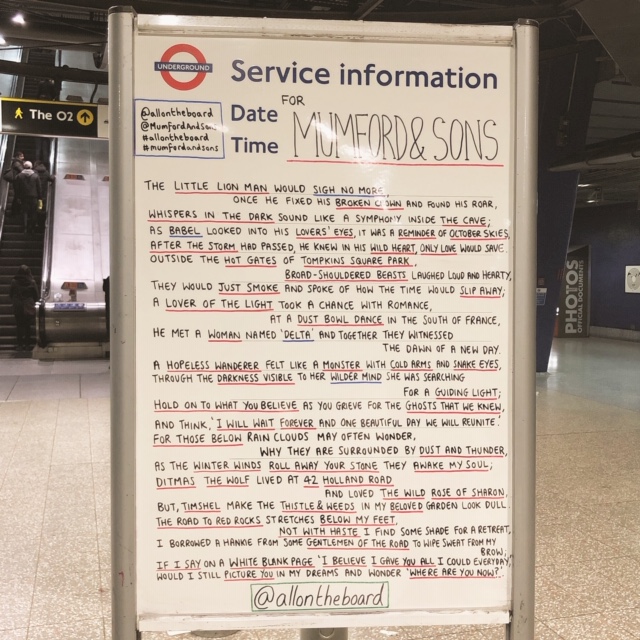 UNDERGROUND
Service information
FOR
Date
Time
MUMFORD & SONS
@allontheboard
@MumfordAndSons
#allontheboard
#mumfordandsons
The O2
THE LITTLE LION MAN WOULD SIGH NO MORE,
ONCE HE FIXED HIS BROKEN CROWN AND FOUND HIS ROAR,
WHISPERS IN THE DARK SOUND LIKE A SYMPHONY INSIDE THE CAVE;
AS BABEL LOOKED INTO HIS LOVERS' EYES, IT WAS A REMINDER OF OCTOBER SKIES,
AFTER THE STORM HAD PASSED, HE KNEW IN HIS WILD HEART, ONLY LOVE WOULD SAVE.
OUTSIDE THE HOT GATES OF TOMPKINS SQUARE PARK,
BROAD-SHOULDERED BEASTS LAUGHED LOUD AND HEARTY,
THEY WOULD JUST SMOKE AND SPOKE OF HOW THE TIME WOULD SLIP AWAY;
A LOVER OF THE LIGHT TOOK A CHANCE WITH ROMANCE,
AT A DUST BOWL DANCE IN THE SOUTH OF FRANCE,
HE MET A WOMAN NAMED 'DELTA' AND TOGETHER THEY WITNESSED
THE DAWN OF A NEW DAY.
A HOPELESS WANDERER FELT LIKE A MONSTER WITH COLD ARMS AND SNAKE EYES,
THROUGH THE DARKNESS VISIBLE TO HER WILDER MIND SHE WAS SEARCHING
FOR A GUIDING LIGHT;
HOLD ON TO WHAT YOU BELIEVE AS YOU GRIEVE FOR THE GHOSTS THAT WE KNEW,
AND THINK, 'I WILL WAIT FOREVER AND ONE BEAUTIFUL DAY WE WILL REUNITE.'
FOR THOSE BELOW RAIN CLOUDS MAY OFTEN WONDER,
WHY THEY ARE SURROUNDED BY DUST AND THUNDER,
AS THE WINTER WINDS ROLL AWAY YOUR STONE THEY AWAKE MY SOUL;
DITMAS THE WOLF LIVED AT 42 HOLLAND ROAD
AND LOVED THE WILD ROSE OF SHARON,
BUT, TIMSHEL MAKE THE THISTLE & WEEDS IN MY BELOVED GARDEN LOOK DULL.
THE ROAD TO RED ROCKS STRETCHES BELOW MY FEET,
NOT WITH HASTE I FIND SOME SHADE FOR A RETREAT,
I BORROWED A HANKIE FROM SOME GENTLEMEN OF THE ROAD TO WIPE SWEAT FROM MY
BROW;
IF I SAY ON A WHITE BLANK PAGE 'I BELIEVE I GAVE YOU ALL I COULD EVERYDAY,'
WOULD I STILL PICTURE YOU IN MY DREAMS AND WONDER 'WHERE ARE YOU NOW?'
@allontheboard
PHOTOS
OFFICIAL DOCUMENTS